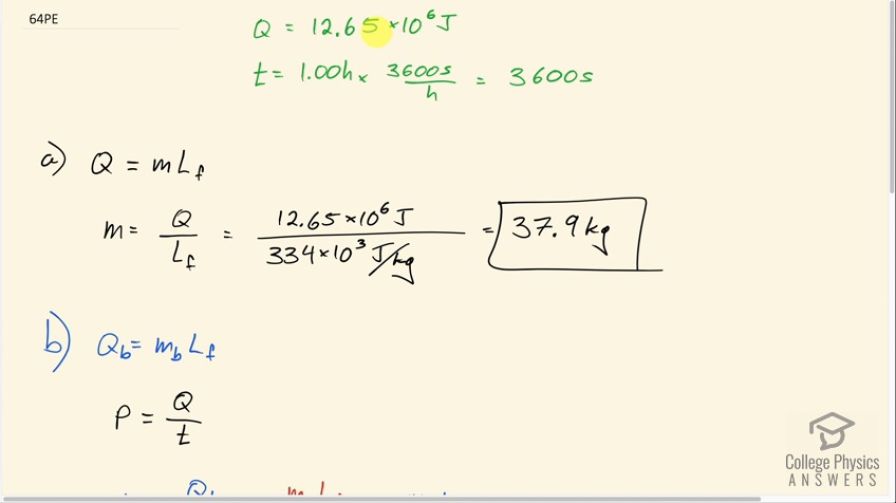 64PE
Q = 12.65 × 10⁶ J
t = 1.00h × 3600s/h = 3600s
a) Q = mL_f
m = Q/L_f = 12.65×10⁶ J / 334×10³ J/kg = 37.9 kg
b) Q_b = m_b L_f
P = Q/t
College Physics
ANSWERS